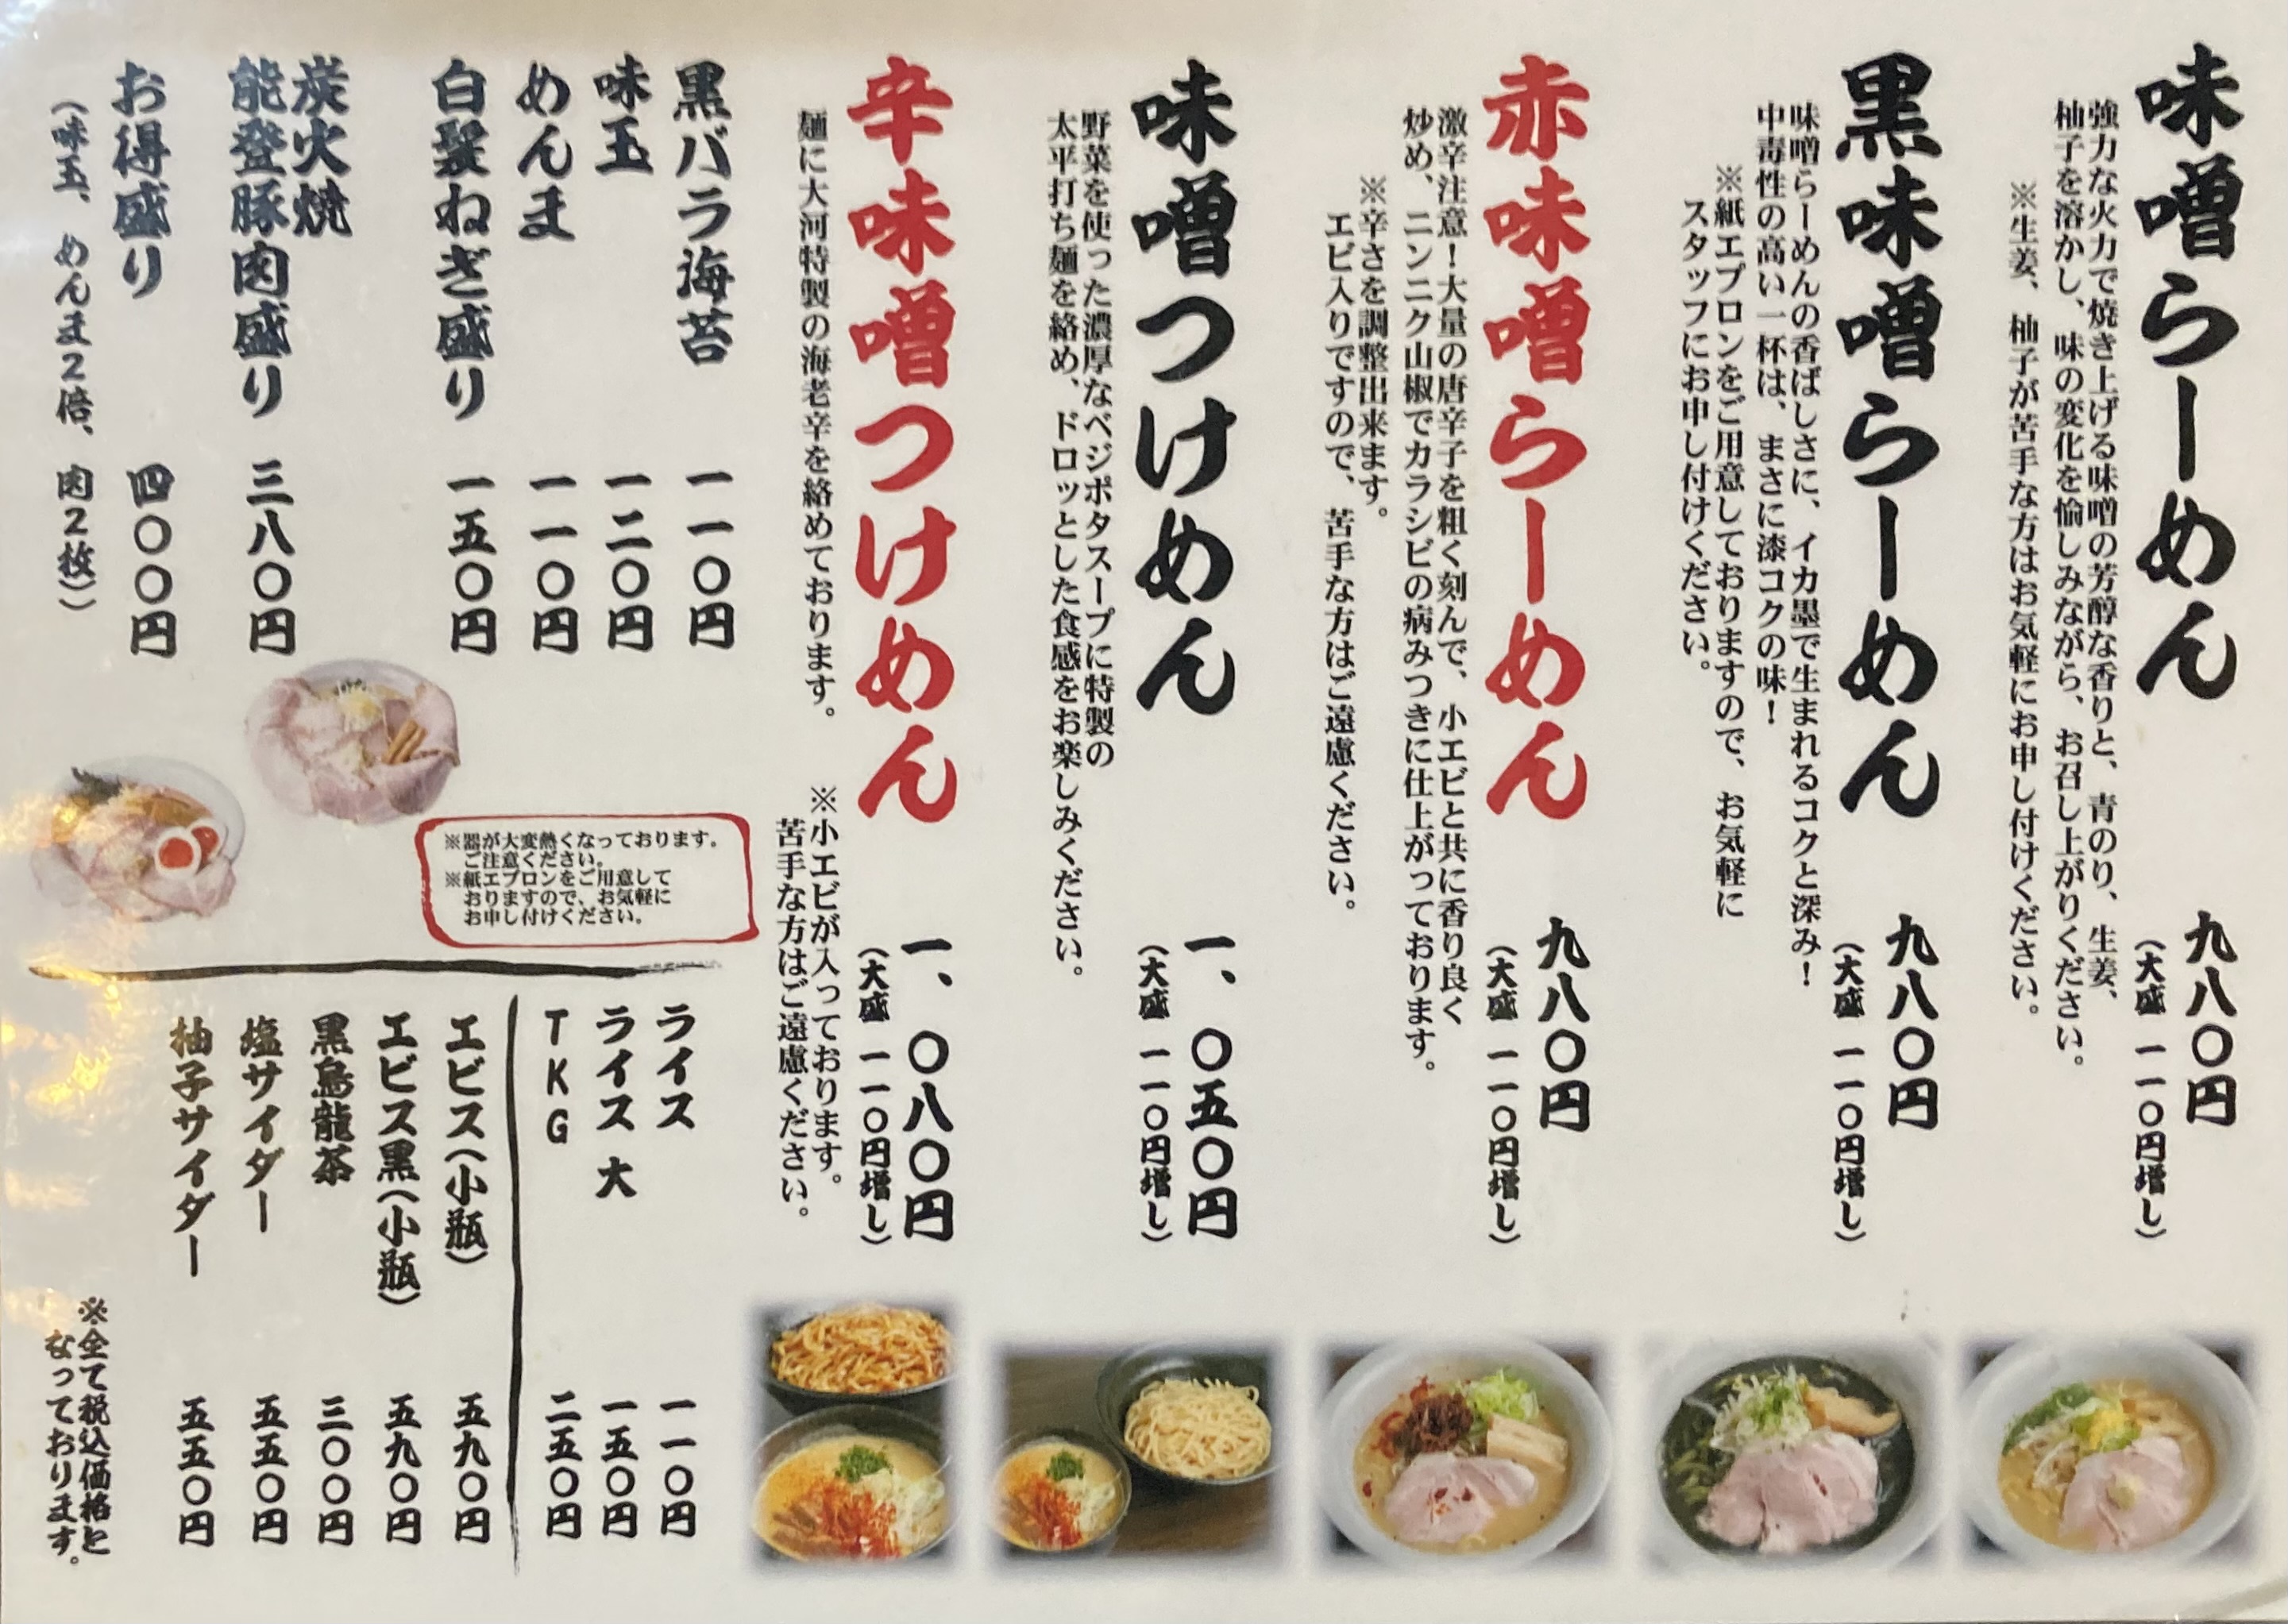 味噌らーめん
強力な火力で焼き上げる味噌の芳醇な香りと、青のり、生姜、
柚子を溶かし、味の変化を愉しみながら、お召し上がりください。
※生姜、柚子が苦手な方はお気軽にお申し付けください。
九八〇円
（大盛 一一〇円増し）
黒味噌らーめん
味噌らーめんの香ばしさに、イカ墨で生まれるコクと深み！
中毒性の高い一杯は、まさに漆コクの味！
※紙エプロンをご用意しておりますので、お気軽に
スタッフにお申し付けください。
九八〇円
（大盛 一一〇円増し）
赤味噌らーめん
激辛注意！大量の唐辛子を粗く刻んで、小エビと共に香り良く
炒め、ニンニク山椒でカラシビの病みつきに仕上がっております。
※辛さを調整出来ます。
エビ入りですので、苦手な方はご遠慮ください。
九八〇円
（大盛 一一〇円増し）
味噌つけめん
野菜を使った濃厚なベジポタスープに特製の
太平打ち麺を絡め、ドロッとした食感をお楽しみください。
一、〇五〇円
（大盛 一一〇円増し）
辛味噌つけめん
麺に大河特製の海老辛を絡めております。
※小エビが入っております。
苦手な方はご遠慮ください。
一、〇八〇円
（大盛 一一〇円増し）
黒バラ海苔 一一〇円
味玉 一二〇円
めんま 一一〇円
白髪ねぎ盛り 一五〇円
炭火焼
能登豚肉盛り 三八〇円
お得盛り 四〇〇円
（味玉、めんま2倍、肉2枚）
※器が大変熱くなっております。
ご注意ください。
※紙エプロンをご用意して
おりますので、お気軽に
お申し付けください。
ライス 一一〇円
ライス 大 一五〇円
TKG 二五〇円
エビス（小瓶） 五九〇円
エビス黒（小瓶） 五九〇円
黒烏龍茶 三〇〇円
塩サイダー 五五〇円
柚子サイダー 五五〇円
※全て税込価格と
なっております。